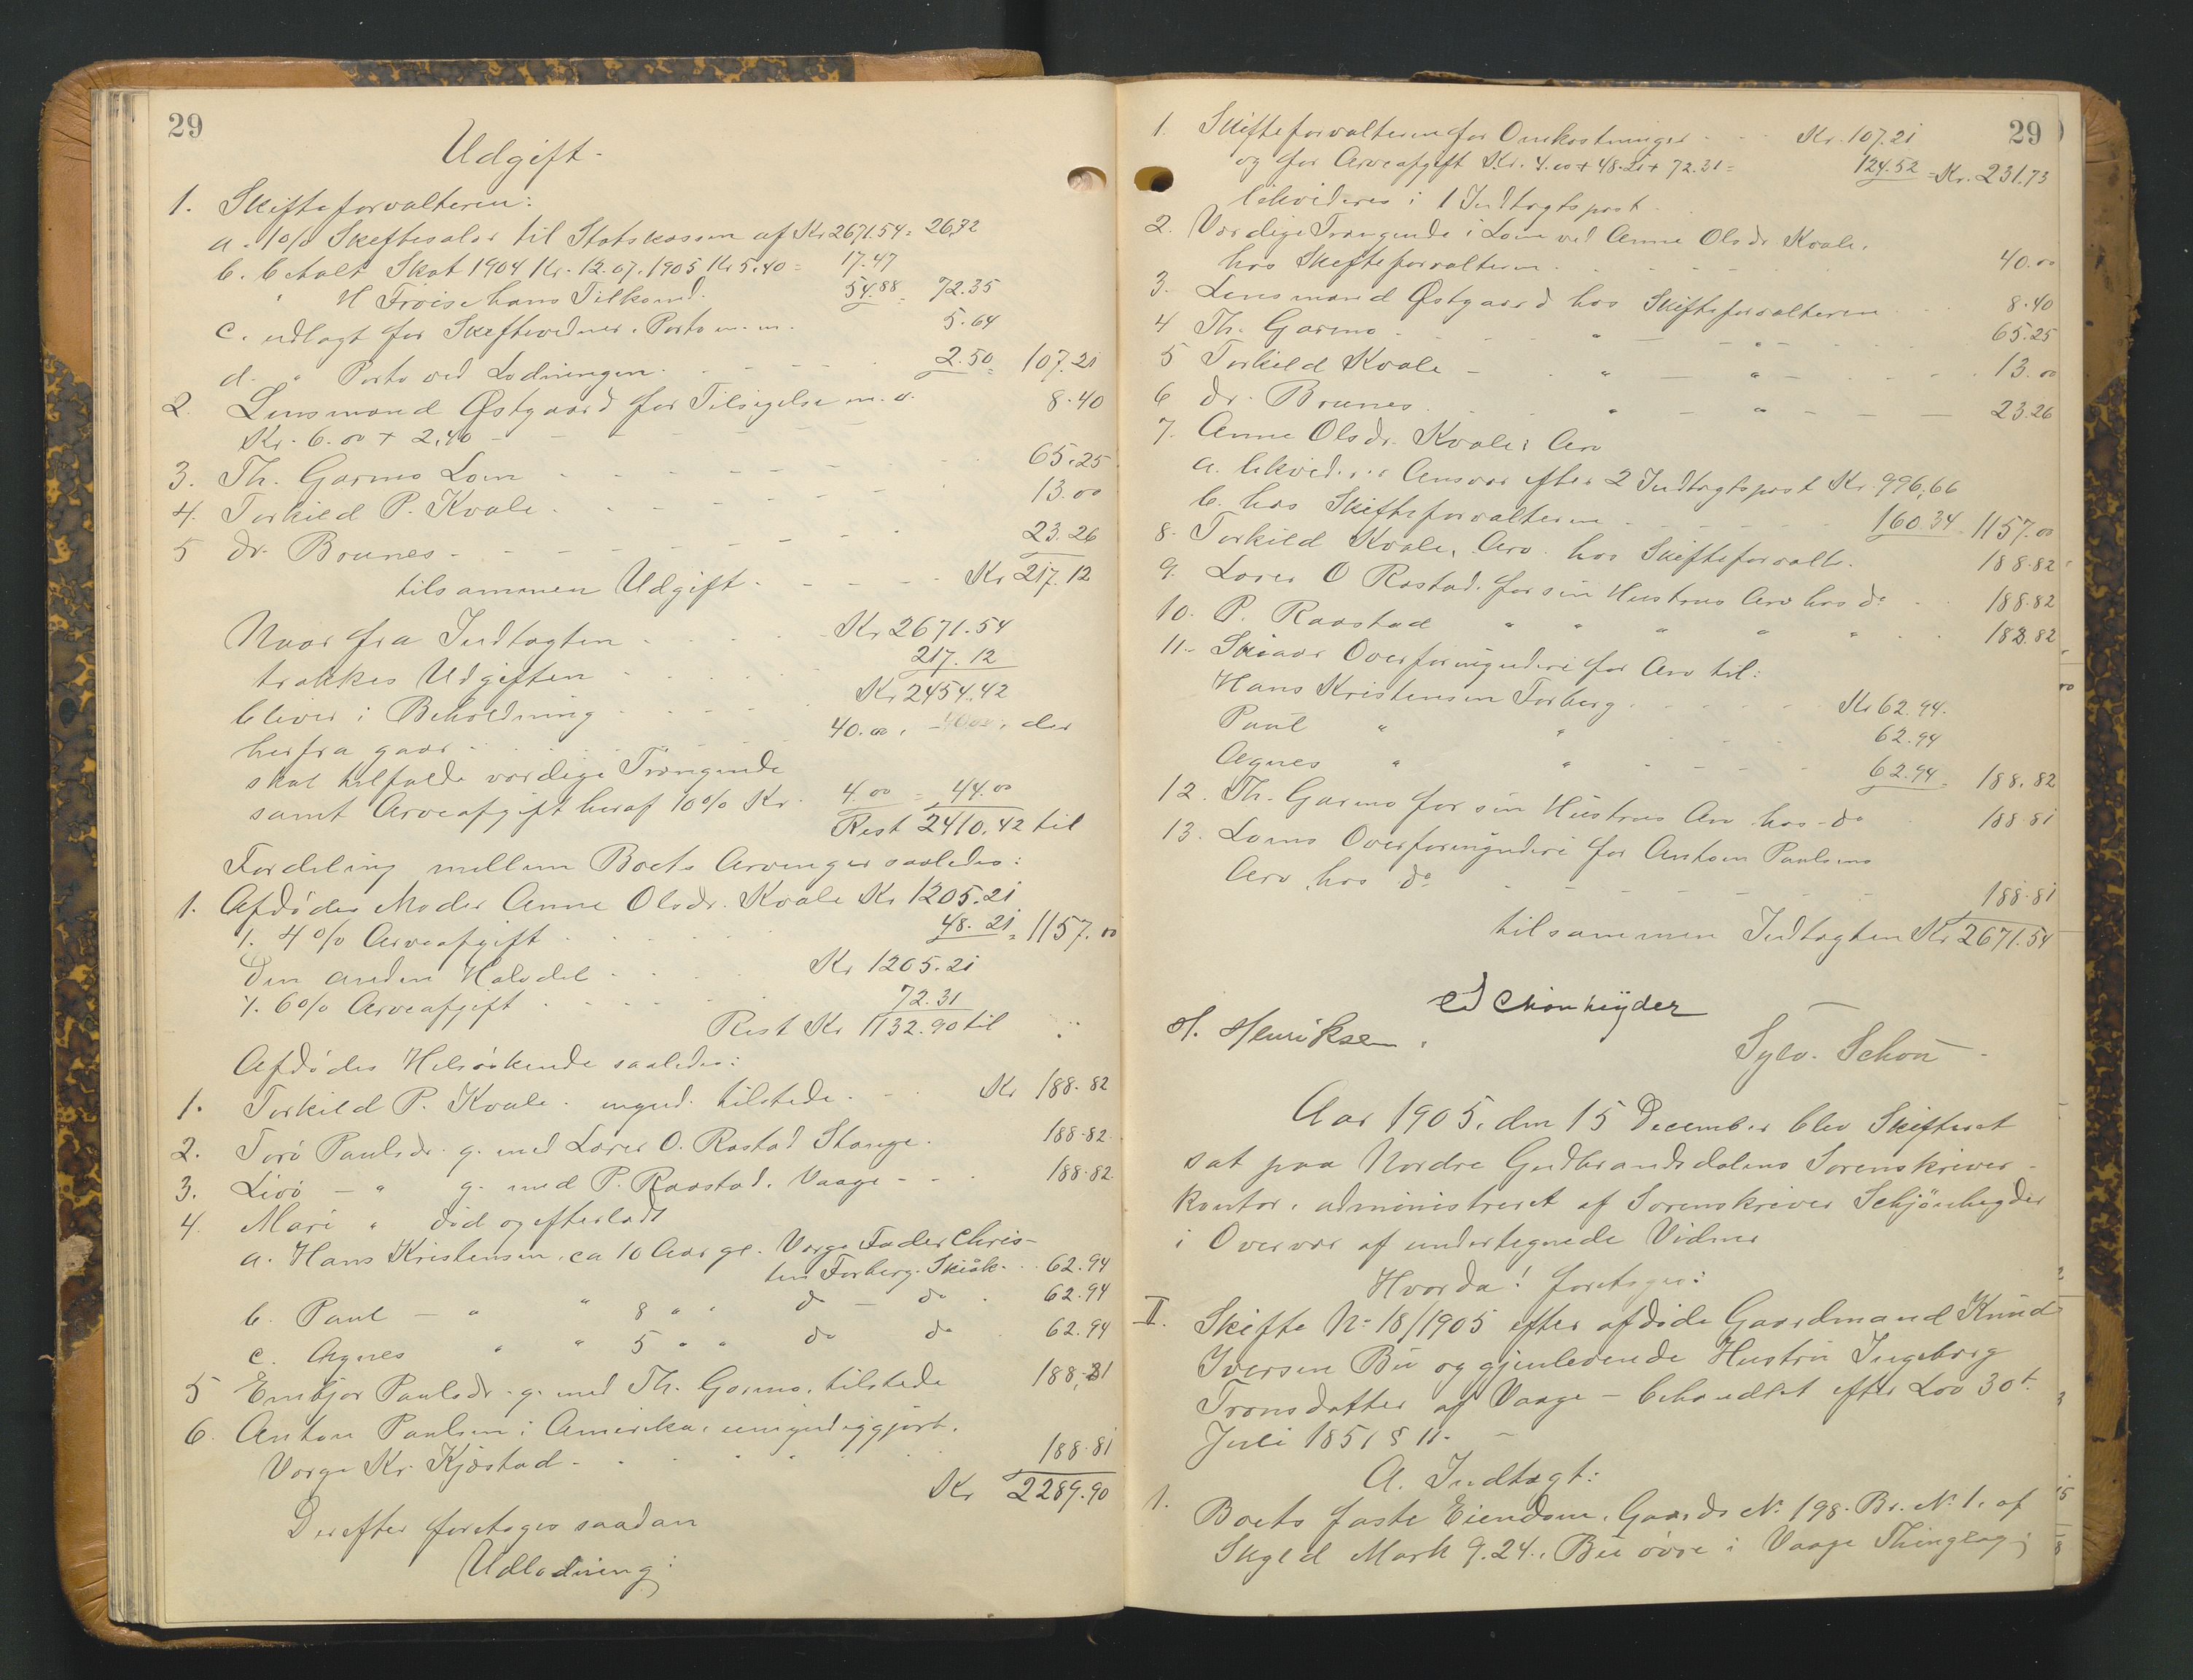 29
Udgift.
1. Skifteforvalteren:
a. 1% Skiftesalær til Statskassen af Kr 2671.54 = 26.72
b. betalt Skat 1904 Kr. 12.07. 1905 Kr 5.40 = 17.47
" H Frøise hans Tilkomd. 54.88 = 72.35
c. udlagt for Skiftevidner. Porto m. m. 5.64
d. " Porto ved Lodningen. 2.50 = 107.21
2. Lensmand Østgaard for Tilsigelse m. v.
Kr. 6.00 + 2.40 - - - - 8.40
3. Th. Garmo Lom - - - - 65.25
4. Torkild P. Kvale. - - - - 13.00
5 dr. Brunes - - - - 23.26
tilsammen Udgift - - - - Kr 217.12
Naar fra Indtægten - - - Kr 2671.54
trækkes Udgiften - - - 217.12
bliver i Beholdning - - - Kr 2454.42
herfra gaar - - - 40.00, der
skal tilfalde værdige Trængende
samt Arveafgift heraf 10% Kr. 4.00 = 44.00
Rest 2410.42 til
Fordeling mellem Boets Arvinger saaledes:
1. Afdødes Moder Anne Olsdr. Kvale Kr 1205.21
÷ 4% Arveafgift - - - 48.21 = 1157.00
Den anden Halvdel - - - Kr 1205.21
÷ 6% Arveafgift - - - 72.31
Rest Kr 1132.90 til
Afdødes Helsøskende saaledes:
1. Torkild P. Kvale. mynd. tilstede - - Kr 188.82
2. Torø Paulsdr. g. med Lærer O. Rostad Stange. 188.82
3. Livø - " g. med P. Raastad. Vaage - - 188.82
4. Mari " død og efterladt
a. Hans Kristensen, ca 10 Aar gl. Værge Fader Chris-
ten Forberg. Skiåk. 62.94
b. Paul - " " 8 " " do - do 62.94
c. Agnes " " 5 " " do do 62.94
5 Embjør Paulsdr. g. med Th. Garmo, tilstede 188.81
6. Anton Paulsen i Amerika, umyndiggjort.
Værge Kr. Kjæstad - - - 188.81
Kr 2289.90
Derefter foretoges saadan
Udlodning:
29
1. Skifteforvalteren for Omkostninger - - Kr. 107.21
og for Arveafgift Kr. 4.00 + 48.21 + 72.31 = 124.52 = Kr. 231.73
likvideres i 1 Indtægtspost.
2. Værdige Trængende i Lom ved Anne Olsdr. Kvale.
hos Skifteforvalteren - - - 40.00
3. Lensmand Østgaard hos Skifteforvalteren - - 8.40
4 Th. Garmo - - " - " - - 65.25
5 Torkild Kvale - - " - " - - 13.00
6 dr. Brunes - - " - " - - 23.26
7. Anne Olsdr. Kvales Arv
a. likvid. i Ansvar efter 2 Indtægtspost Kr. 996.66
b. hos Skifteforvalteren - - - 160.34 1157.00
8. Torkild Kvale, Arv. hos Skifteforvalt. 188.82
9. Lærer O Rostad. for sin Hustrus Arv hos do - - 188.82
10. P. Raastad " " " " " - - 188.82
11. Skiaar Overformynderi for Arv til:
Hans Kristensen Forberg - - - Kr 62.94.
Paul " " - - 62.94
Agnes " " - - 62.94 = 188.82
12. Th. Garmo for sin Hustrus Arv hos do 188.81
13. Loms Overformynderi for Anton Paulsens
Arv hos do - - - 188.81
tilsammen Indtægten Kr 2671.54
E Schønheyder
H. Henriksen. Sylv. Schou
Aar 1905, den 15 December blev Skifteret
sat paa Nordre Gudbrandsdalens Sorenskriver-
kontor, administreret af Sorenskriver Schjønheyder
i Overvær af undertegnede Vidner
Hvorda! foretoges:
II. Skifte No 18/1905 efter afdøde Gaardmand Knud
Iversen Bu og gjenlevende Hustru Ingeborg
Tronsdatter af Vaage - behandlet efter Lov 30t
Juli 1851 § 11. -
A. Indtægt:
1. Boets faste Eiendom, Gaards No 198. Br. No 1. af
Skyld Mark 9.24. Bu øvre i Vaage Thinglag;